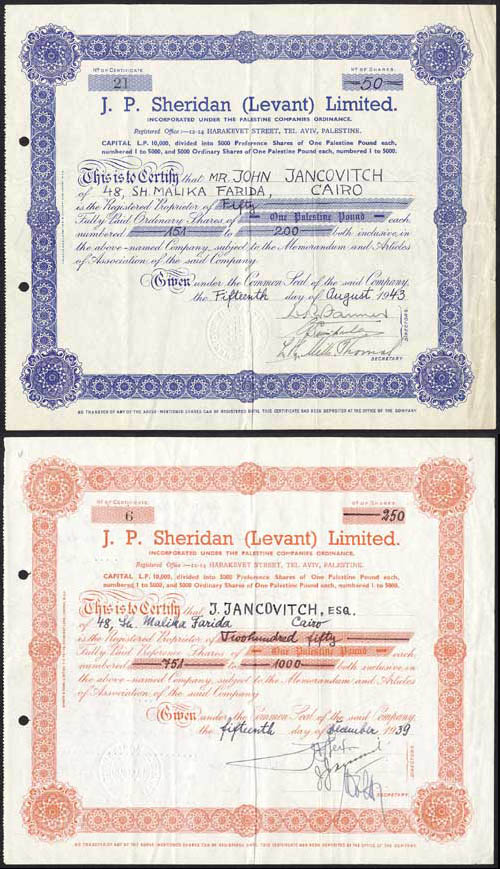 No OF CERTIFICATE
21
No OF SHARES
50
J. P. Sheridan (Levant) Limited.
INCORPORATED UNDER THE PALESTINE COMPANIES ORDINANCE.
Registered Office:—12-14 HARAKEVET STREET, TEL AVIV, PALESTINE.
CAPITAL L.P. 10,000, divided into 5000 Preference Shares of One Palestine Pound each,
numbered 1 to 5000, and 5000 Ordinary Shares of One Palestine Pound each, numbered 1 to 5000.
This is to Certify that MR. JOHN JANCOVITCH
of 48, SH. MALIKA FARIDA, CAIRO
is the Registered Proprietor of Fifty
Fully Paid Ordinary Shares of One Palestine Pound each
numbered 151 to 200 both inclusive, in
the above-named Company, subject to the Memorandum and Articles
of Association of the said Company.
Given under the Common Seal of the said Company,
the Fifteenth day of August 1943
DIRECTORS.
SECRETARY.
NO TRANSFER OF ANY OF THE ABOVE-MENTIONED SHARES CAN BE REGISTERED UNTIL THIS CERTIFICATE HAS BEEN DEPOSITED AT THE OFFICE OF THE COMPANY
No OF CERTIFICATE
6
No OF SHARES
250
J. P. Sheridan (Levant) Limited.
INCORPORATED UNDER THE PALESTINE COMPANIES ORDINANCE.
Registered Office:—12-14 HARAKEVET STREET, TEL AVIV, PALESTINE.
CAPITAL L.P. 10,000, divided into 5000 Preference Shares of One Palestine Pound each,
numbered 1 to 5000, and 5000 Ordinary Shares of One Palestine Pound each, numbered 1 to 5000.
This is to Certify that J. JANCOVITCH, ESQ.
of 48, Sh. Malika Farida Cairo
is the Registered Proprietor of Twohundred fifty
Fully Paid Preference Shares of One Palestine Pound each
numbered 751 to 1000 both inclusive, in
the above-named Company, subject to the Memorandum and Articles
of Association of the said Company
Given under the Common Seal of the said Company,
the fifteenth day of december 1939
DIRECTORS.
SECRETARY.
NO TRANSFER OF ANY OF THE ABOVE-MENTIONED SHARES CAN BE REGISTERED UNTIL THIS CERTIFICATE HAS BEEN DEPOSITED AT THE OFFICE OF THE COMPANY